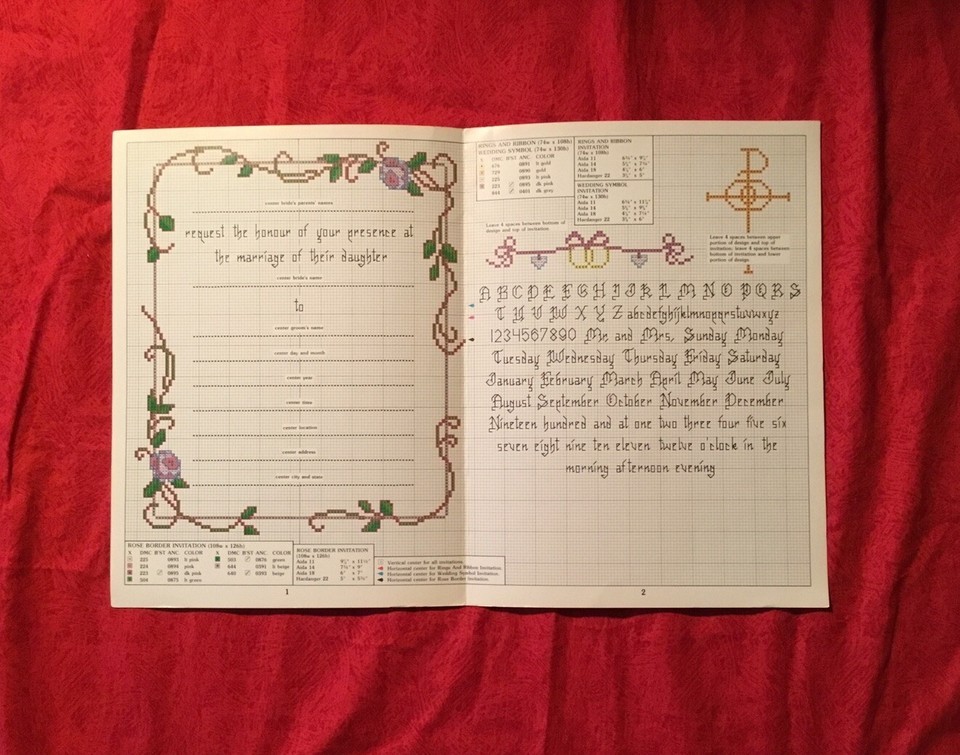 center bride's parents' names
request the honour of your presence at
the marriage of their daughter
center bride's name
to
center groom's name
center day and month
center year
center time
center location
center address
center city and state
ROSE BORDER INVITATION (108w x 126h)
X DMC B'ST ANC. COLOR
225 0892 lt pink
224 0894 pink
223 0895 dk pink
504 0875 lt green
503 0876 green
644 0391 lt beige
640 0393 beige
ROSE BORDER INVITATION
(108w x 126h)
Aida 11
Aida 14
Aida 18
Hardanger 22
Vertical center for all invitations.
Horizontal center for Rings And Ribbon Invitation.
Horizontal center for Wedding Symbol Invitation.
Horizontal center for Rose Border Invitation.
1
RINGS AND RIBBON (74w x 108h)
WEDDING SYMBOL (74w x 130h)
X DMC B'ST ANC. COLOR
676 0891 lt gold
729 0890 gold
225 lt pink
223 0895 dk pink
844 0401 dk gray
RINGS AND RIBBON
INVITATION
(74w x 108h)
Aida 11
Aida 14
Aida 18
Hardanger 22
WEDDING SYMBOL
INVITATION
(74w x 130h)
Aida 11
Aida 14
Aida 18
Hardanger 22
Leave 4 spaces between bottom of
design and top of invitation.
Leave 4 spaces between upper
portion of design and top of
invitation; leave 4 spaces between
bottom of invitation and lower
portion of design.
A B C D E F G H I J K L M N O P Q R S
T U V W X Y Z abcdefghijklmnopqrstuvwxyz
1234567890 Mr. and Mrs. Sunday Monday
Tuesday Wednesday Thursday Friday Saturday
January February March April May June July
August September October November December
Nineteen hundred and at one two three four five six
seven eight nine ten eleven twelve o'clock in the
morning afternoon evening
2